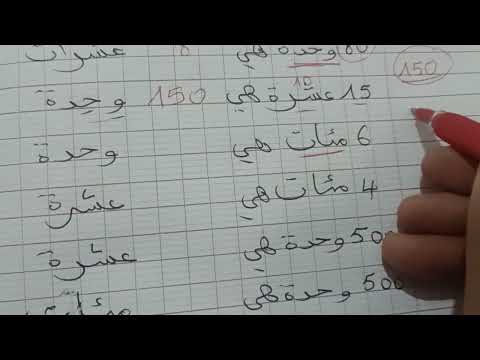 60 وحدة هي 6 عشرات
150
10
15 عشرة هي 150 وحدة
6 مئات هي وحدة
4 مئات هي عشرة
500 وحدة هي عشرة
500 وحدة هي